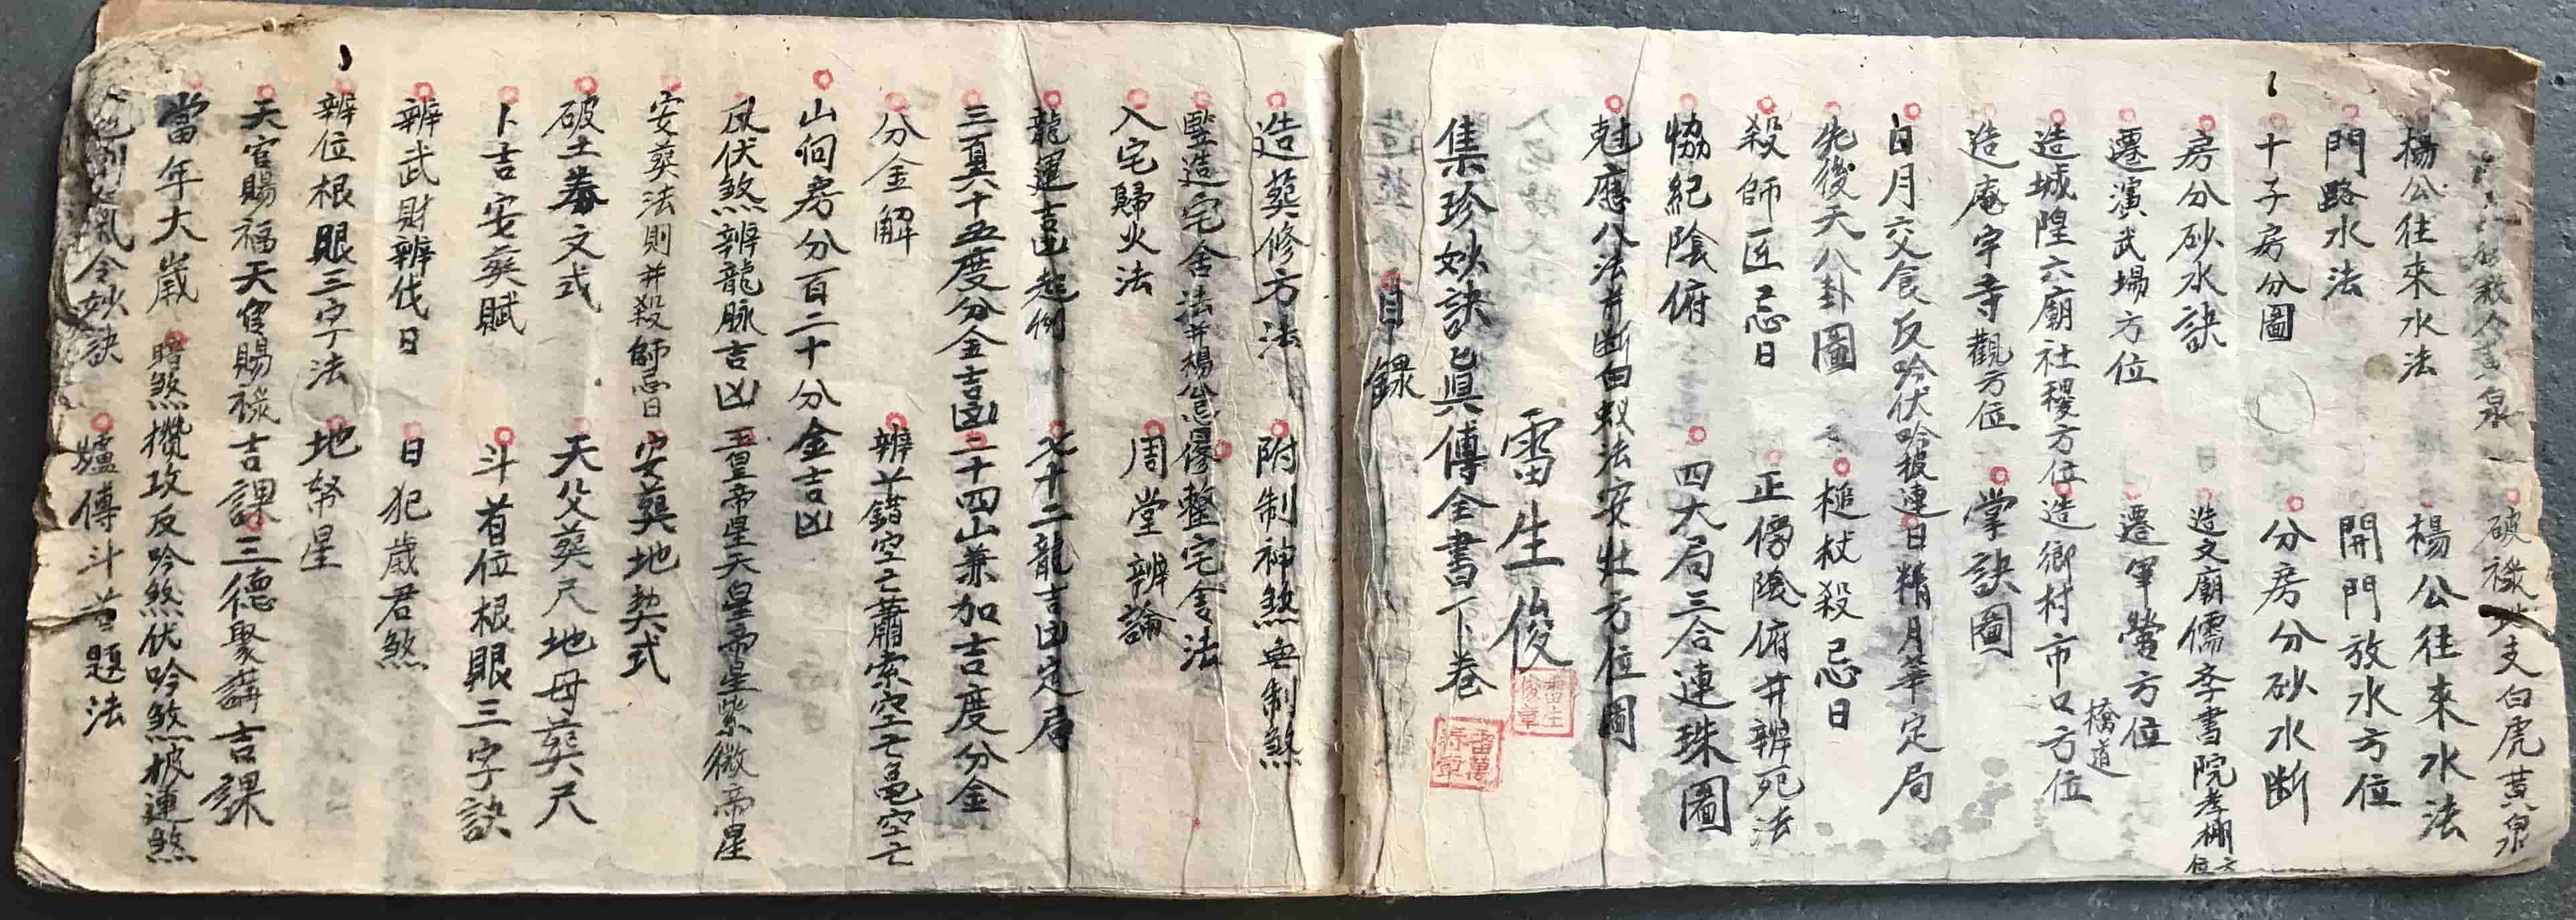 殺人黃泉 破祿 支白虎黃泉
楊公往來水法 楊公往來水法
門路水法 開門放水方位
十子房分圖 分房分砂水断
房分砂水訣 造文廟儒李書院孝棚方位
遷演武場方位 遷軍營方位
造城隍六廟社稷方位 造鄉村市口橋道方位
造庵宇寺觀方位 掌訣圖
日月六爻食反吟伏吟披連 日精月華定局
先後天八卦圖 槌杖殺忌日
殺師匠忌日 正傍陰俯并辨死法
恊紀陰俯 四大局三合連珠圖
尅應八法并断白蚁法安灶方位圖
雷生俊
雷生俊章
集珍妙訣真傳全書下卷
雷萬
目錄
造葬修方法 附制神煞無制煞
豎造宅舍法并楊公忌 修整宅舍法
入宅歸火法 周堂辨論
龍運吉凶起例 七十二龍吉凶定局
三百六十五度分金吉凶 二十四山兼加吉度分金
分金解 辨差錯空亡蕭索空亡龟空亡
山向房分百二十分金吉凶
風伏煞辨龍脉吉凶 玉皇帝星天皇帝星紫微帝星
安葬法則并殺師忌日 安葬地契式
破土券文式 天父葬尺地母葬尺
卜吉安葬賦 斗首位根眼三字訣
辨武財辨伐日 日犯歲君煞
辨位根眼三字法 地帑星
天官賜福天官賜祿吉課 三德聚講吉課
當年大歲 暗煞攢攻反吟煞伏吟煞披連煞
氣令妙訣 爐傳斗首題法